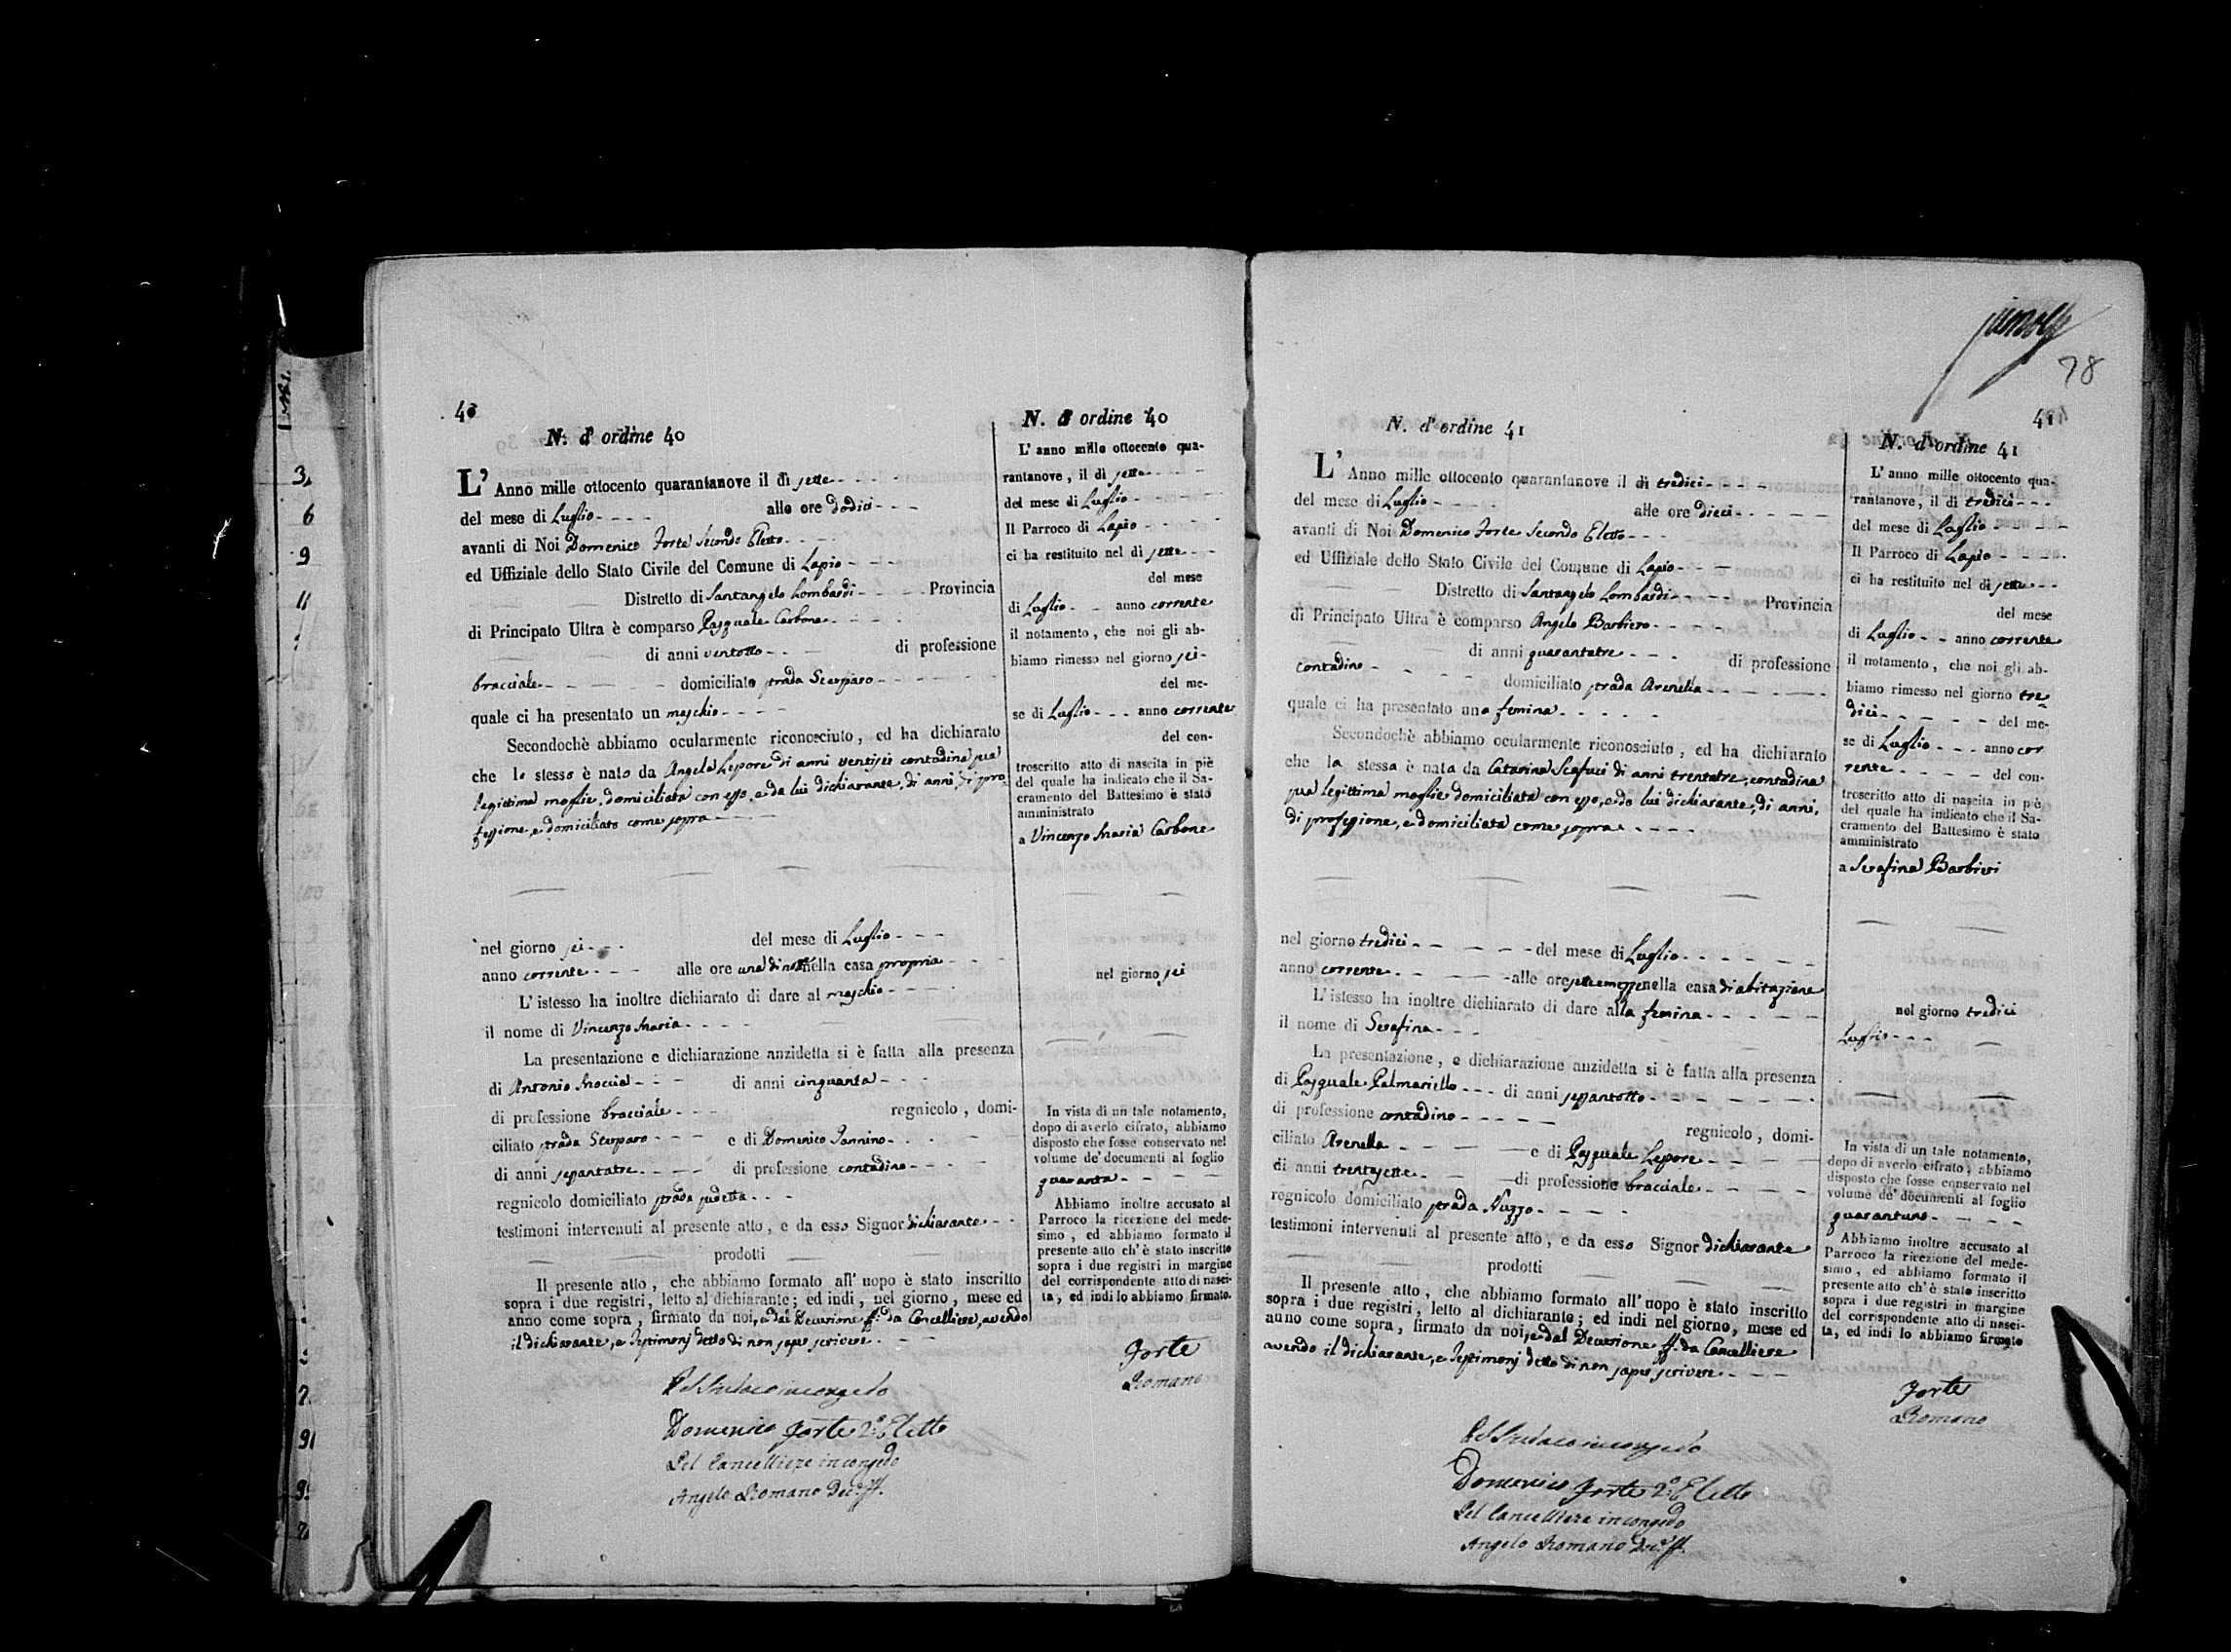 40
N. d' ordine 40
L' Anno mille ottocento quarantanove il dì sette
del mese di Luglio alle ore dodici
avanti di Noi Domenico Forte Secondo Eletto
ed Uffiziale dello Stato Civile del Comune di Lapio
Distretto di Santangelo Lombardi Provincia
di Principato Ultra è comparso Pasquale Carbone
di anni ventotto di professione
bracciale domiciliato strada Scarparo
quale ci ha presentato un maschio
Secondochè abbiamo ocularmente riconosciuto, ed ha dichiarato
che lo stesso è nato da Angela Lepore di anni ventisei contadina sua
legittima moglie, domiciliata con esso, e da lui dichiarante, di anni, di pro
fessione, e domiciliato come sopra
nel giorno sei del mese di Luglio
anno corrente alle ore una di notte nella casa propria
L' istesso ha inoltre dichiarato di dare al maschio
il nome di Vincenzo Maria
La presentazione e dichiarazione anzidetta si è fatta alla presenza
di Antonio Moccia di anni cinquanta
di professione bracciale regnicolo, domi-
ciliato strada Scarparo e di Domenico Iannino
di anni sessantatre di professione contadino
regnicolo domiciliato strada sudetta
testimoni intervenuti al presente atto, e da esso Signor dichiarante
prodotti
Il presente atto, che abbiamo formato all' uopo è stato inscritto
sopra i due registri, letto al dichiarante; ed indi, nel giorno, mese ed
anno come sopra, firmato da noi, e dal Decurione ff. da Cancelliere, avendo
il dichiarante, e Testimonj detto di non saper scrivere
Pel Sindaco in congedo
Domenico Forte 2.º Eletto
Pel Cancelliere in congedo
Angelo Romano Dec.e ff.
N. d' ordine 40
L' anno mille ottocento qua-
rantanove, il dì sette
del mese di Luglio
Il Parroco di Lapio
ci ha restituito nel dì sette
del mese
di Luglio anno corrente
il notamento, che noi gli ab-
biamo rimesso nel giorno sei
del me-
se di Luglio anno corrente
del con-
troscritto atto di nascita in piè
del quale ha indicato che il Sa-
cramento del Battesimo è stato
amministrato
a Vincenzo Maria Carbone
nel giorno sei
In vista di un tale notamento,
dopo di averlo cifrato, abbiamo
disposto che fosse conservato nel
volume de' documenti al foglio
quaranta
Abbiamo inoltre accusato al
Parroco la ricezione del mede-
simo, ed abbiamo formato il
presente atto ch' è stato inscritto
sopra i due registri in margine
del corrispondente atto di nasci-
ta, ed indi lo abbiamo firmato.
Forte
Romano
78
41
N. d' ordine 41
L' Anno mille ottocento quarantanove il dì tredici
del mese di Luglio alle ore dieci
avanti di Noi Domenico Forte Secondo Eletto
ed Uffiziale dello Stato Civile del Comune di Lapio
Distretto di Santangelo Lombardi Provincia
di Principato Ultra è comparso Angelo Barbiero
di anni quarantatre di professione
contadino domiciliato strada Arenella
quale ci ha presentato una femina
Secondochè abbiamo ocularmente riconosciuto, ed ha dichiarato
che la stessa è nata da Catarina Scafuri di anni trentatre, contadina
sua legittima moglie domiciliata con esso, e da lui dichiarante, di anni,
di professione, e domiciliata come sopra
nel giorno tredici del mese di Luglio
anno corrente alle ore sette emezze nella casa di abitazione
L' istesso ha inoltre dichiarato di dare alla femina
il nome di Serafina
La presentazione, e dichiarazione anzidetta si è fatta alla presenza
di Pasquale Palmariello di anni sessantotto
di professione contadino regnicolo, domi-
ciliato Arenella e di Pasquale Lepore
di anni trentasette di professione bracciale
regnicolo domiciliato strada Nuzzo
testimoni intervenuti al presente atto, e da esso Signor dichiarante
prodotti
Il presente atto, che abbiamo formato all' uopo è stato inscritto
sopra i due registri, letto al dichiarante; ed indi nel giorno, mese ed
anno come sopra, firmato da noi, e dal Decurione ff. da Cancelliere
avendo il dichiarante, e Testimonj detto di non saper scrivere
Pel Sindaco in congedo
Domenico Forte 2.º Eletto
Pel Cancelliere in congedo
Angelo Romano Dec.e ff.
N. d' ordine 41
L' anno mille ottocento qua-
rantanove, il dì tredici
del mese di Luglio
Il Parroco di Lapio
ci ha restituito nel dì sette
del mese
di Luglio anno corrente
il notamento, che noi gli ab-
biamo rimesso nel giorno tre
dici del me-
se di Luglio anno cor
rente del con-
troscritto atto di nascita in piè
del quale ha indicato che il Sa-
cramento del Battesimo è stato
amministrato
a Serafina Barbieri
nel giorno tredici
Luglio
In vista di un tale notamento,
dopo di averlo cifrato, abbiamo
disposto che fosse conservato nel
volume de' documenti al foglio
quarantuno
Abbiamo inoltre accusato al
Parroco la ricezione del mede-
simo, ed abbiamo formato il
presente atto ch' è stato inscritto
sopra i due registri in margine
del corrispondente atto di nasci-
ta, ed indi lo abbiamo firmato
Forte
Romano